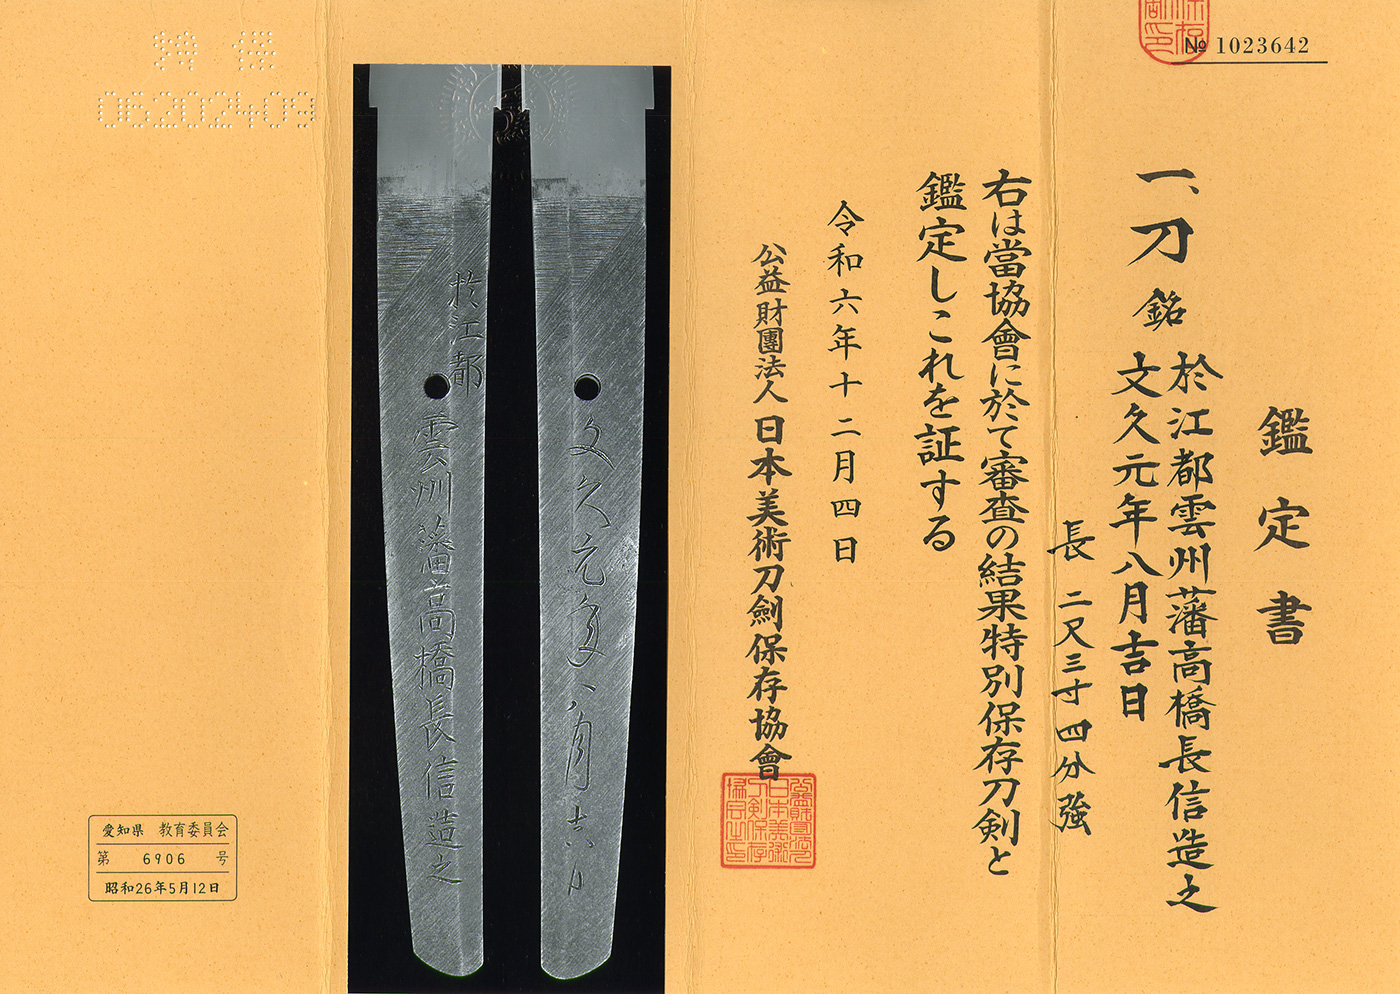 № 1023642
鑑定書
一、刀 銘 於江都雲州藩高橋長信造之
文久元年八月吉日
長 二尺三寸四分強
右は當協會に於て審査の結果特別保存刀剣と
鑑定しこれを証する
令和六年十二月四日
公益財團法人 日本美術刀劍保存協會
文久元年八月吉日
於江都
雲州藩高橋長信造之
特 保
06202409
愛知県 教育委員会
第 6906 号
昭和26年5月12日